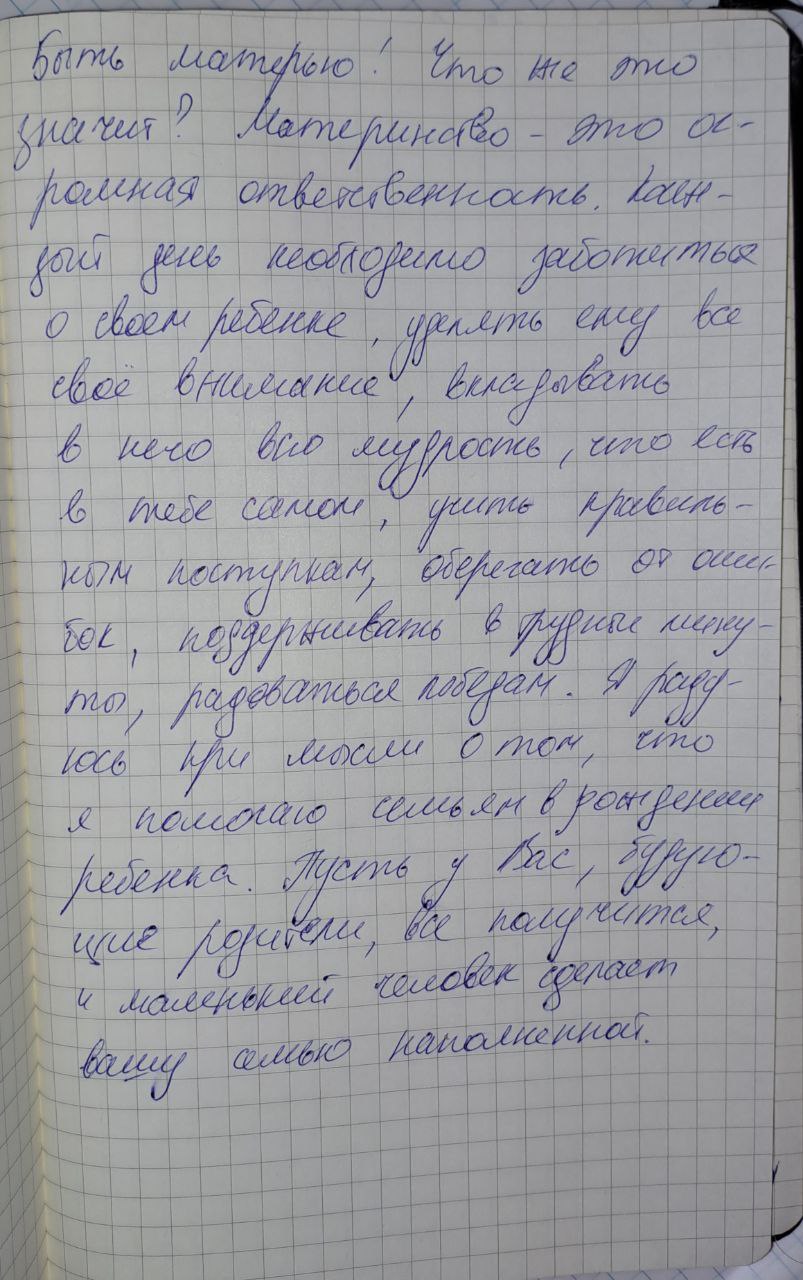 Быть матерью! Что же это
значит? Материнство - это ог-
ромная ответственность. Каж-
дый день необходимо заботиться
о своем ребенке, уделять ему все
своё внимание, вкладывать
в него всю мудрость, что есть
в тебе самом, учить правиль-
ным поступкам, оберегать от оши-
бок, поддерживать в трудные мину-
ты, радоваться победам. Я раду-
юсь при мысли о том, что
я помогаю семьям в рождении
ребенка. Пусть у Вас, будую-
щие родители, все получится,
и маленький человек сделает
вашу семью наполненной.